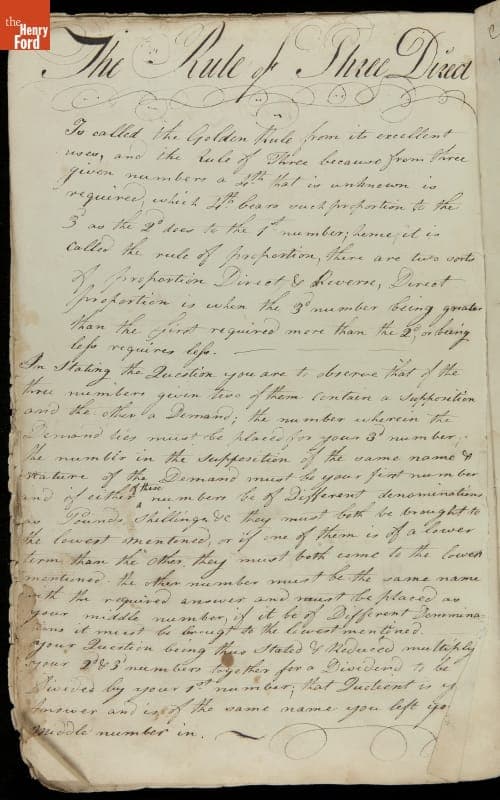 the
Henry
Ford
The Rule of Three Direct
Is called the Golden Rule from its excellent
uses, and the Rule of Three because from three
given numbers a 4th that is unknown is
required, which 4th bears such proportion to the
3d as the 2d does to the 1st number; hence it is
called the rule of proportion, there are two sorts
of proportion Direct & Reverse, Direct
proportion is when the 3d number being greater
than the first required more than the 2d, or being
less requires less.
In Stating the Question you are to observe that of the
three numbers given two of them contain a Supposition
and the other a Demand; the number wherein the
Demand lies must be placed for your 3d number;
the number in the Supposition of the same name &
Nature of the Demand must be your first number
and if either of these numbers be of Different denominations
as Pounds Shillings &c they must both be brought to
the lowest mentioned, or if one of them is of a lower
term than the other, they must both come to the lowest
mentioned. the other number must be the same name
with the required answer and must be placed as
your middle number, if it be of Different Denomina-
tions it must be brought to the lowest mentioned.
your Question being thus Stated & Reduced multiply
your 2d & 3d numbers together for a Dividend to be
Divided by your 1st number, that Quotient is y
Answer and is of the same name you left yo
middle number in.